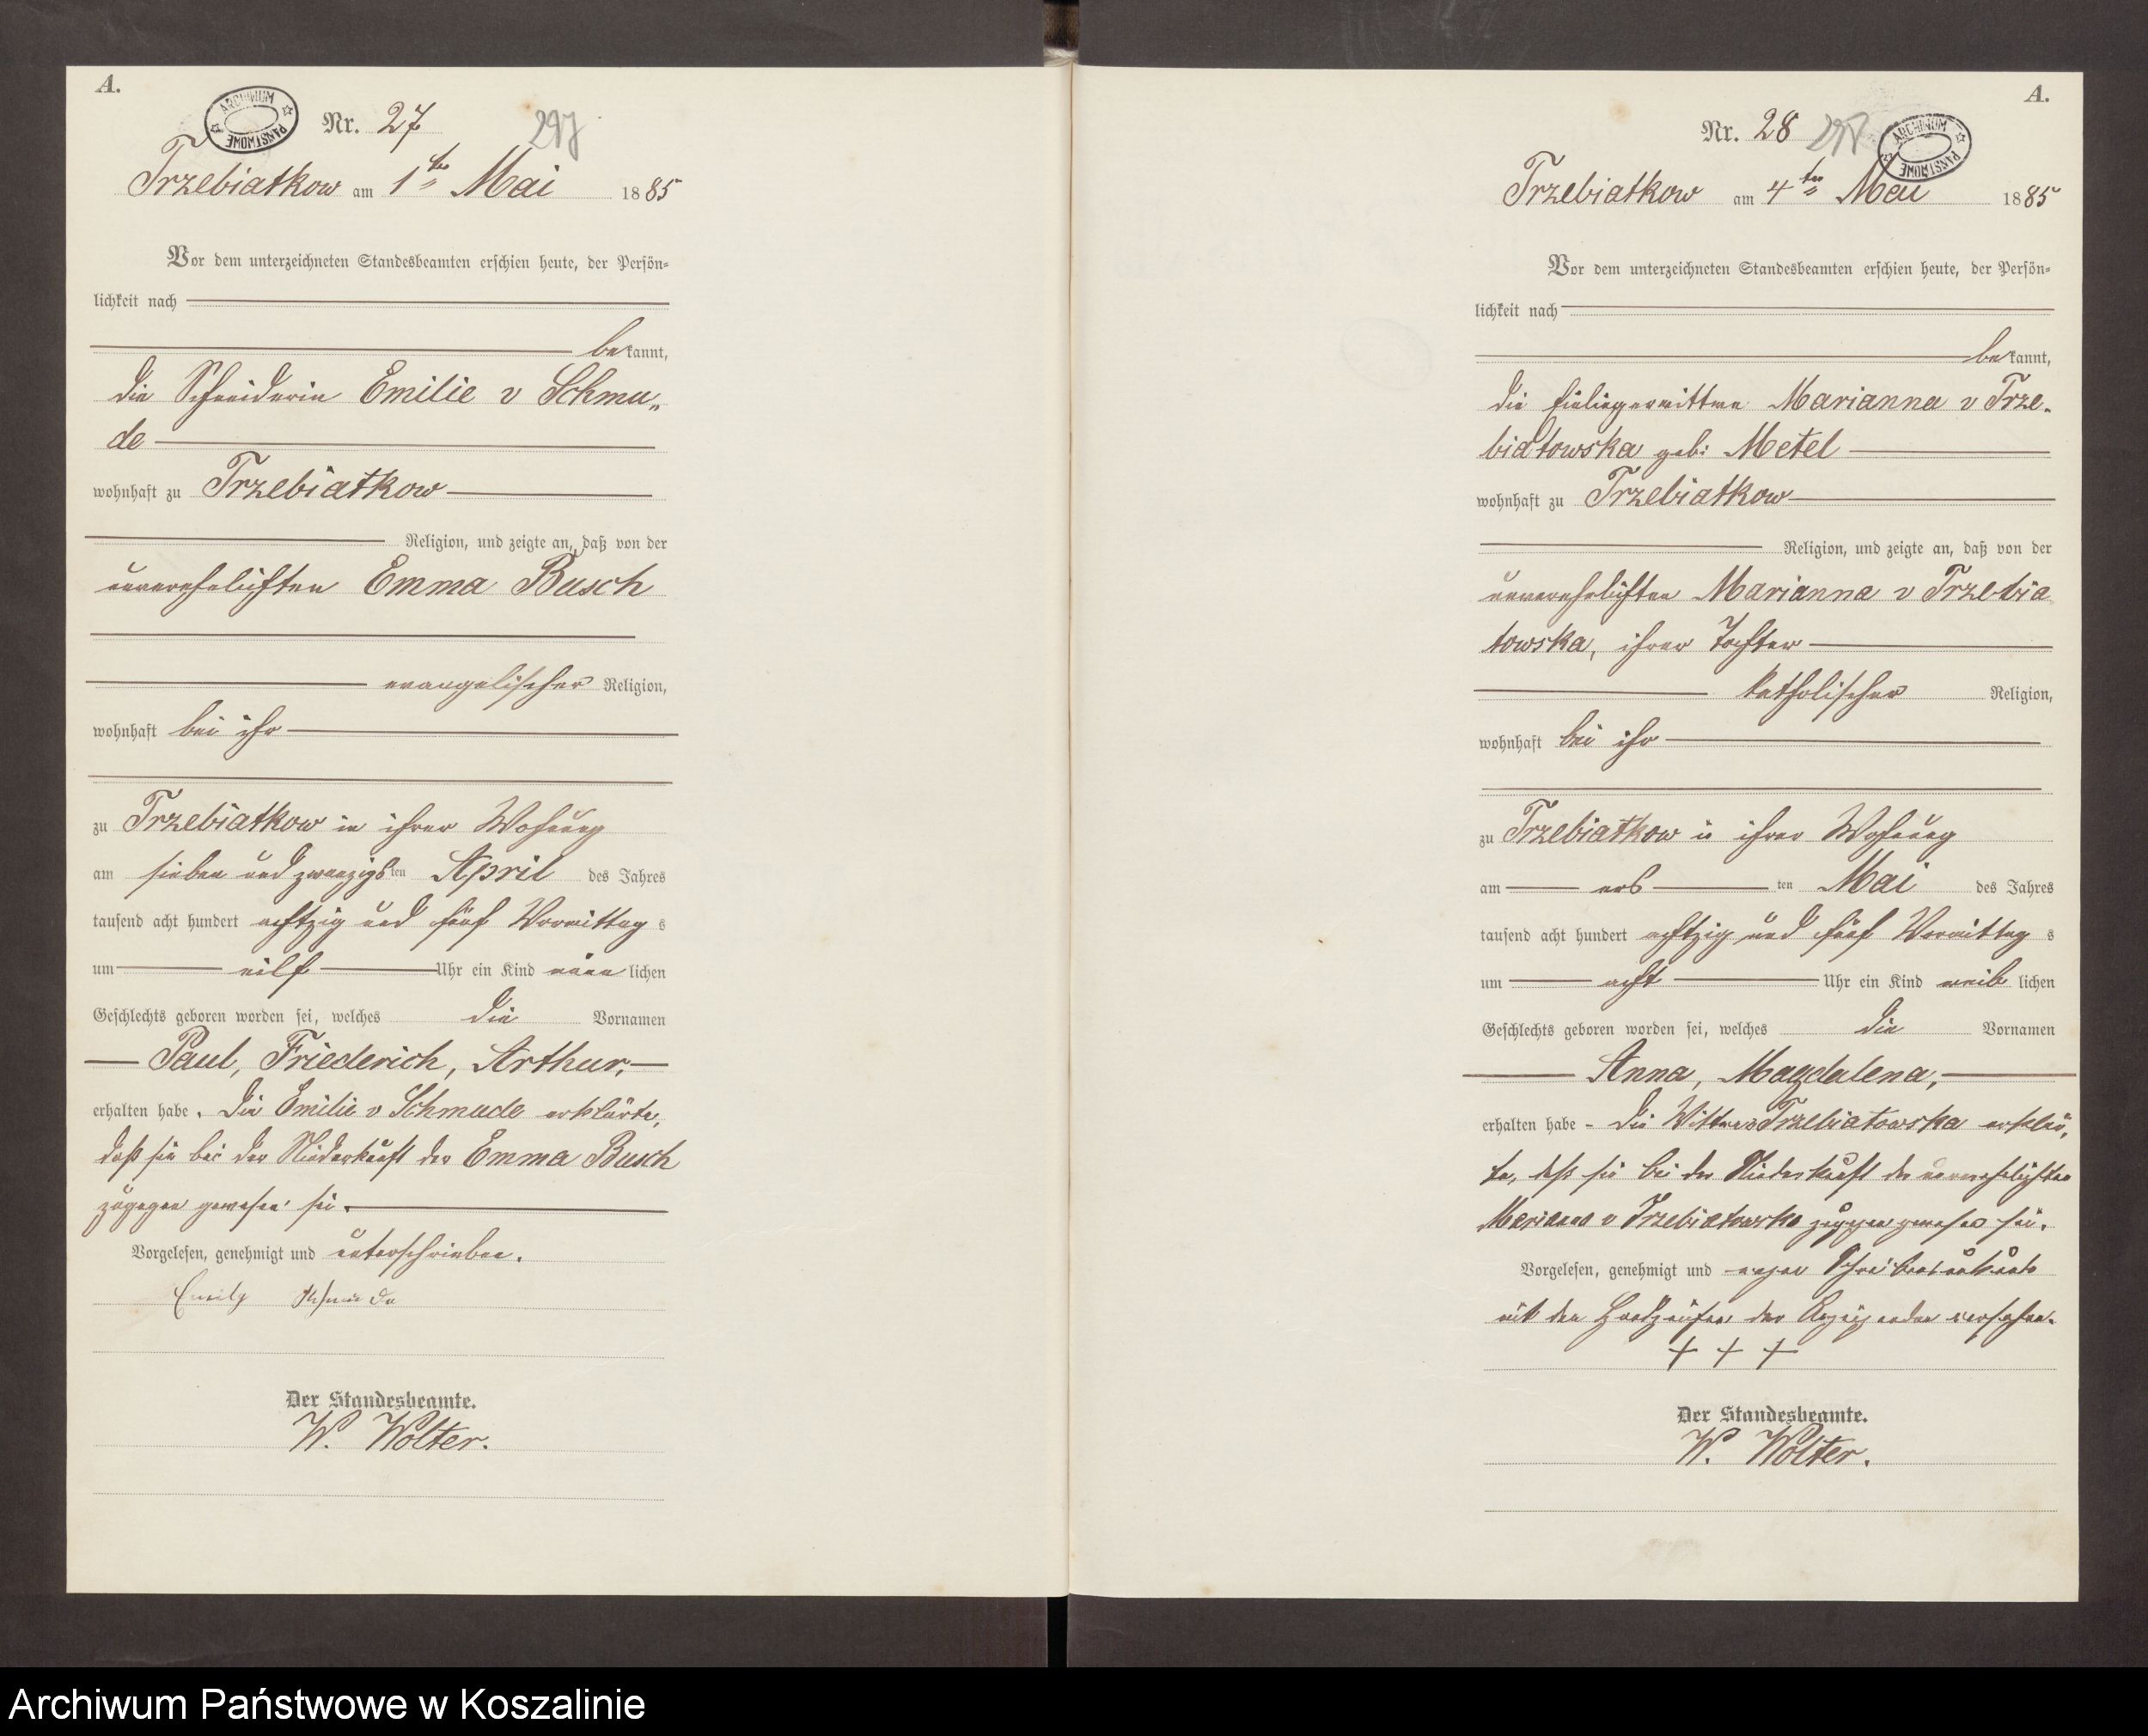 A.
ARCHIWUM PAŃSTWOWE
Nr. 27
297
Trzebiatkow am 1ten Mai 1885
Vor dem unterzeichneten Standesbeamten erschien heute, der Persön=
lichkeit nach
bekannt,
die Schneiderin Emilie v Schmu„
de
wohnhaft zu Trzebiatkow
Religion, und zeigte an, daß von der
unverehelichten Emma Busch
evangelischer Religion,
wohnhaft bei ihr
zu Trzebiatkow in ihrer Wohnung
am sieben und zwanzigsten April des Jahres
tausend acht hundert achtzig und fünf Vormittags
um eilf Uhr ein Kind männlichen
Geschlechts geboren worden sei, welches die Vornamen
Paul, Friederich, Arthur,
erhalten habe. Die Emilie v Schmude erklärte,
daß sie bei der Niederkunft der Emma Busch
zugegen gewesen sei.
Vorgelesen, genehmigt und unterschrieben.
Emily Schmude
Der Standesbeamte.
W. Wolter.
A.
Nr. 28
298
ARCHIWUM PAŃSTWOWE
Trzebiatkow am 4ten Mai 1885
Vor dem unterzeichneten Standesbeamten erschien heute, der Persön=
lichkeit nach
bekannt,
die Einliegerwittwe Marianna v Trze-
biatowska geb: Metel
wohnhaft zu Trzebiatkow
Religion, und zeigte an, daß von der
unverehelichten Marianna v Trzebia
towska, ihrer Tochter
katholischer Religion,
wohnhaft bei ihr
zu Trzebiatkow in ihrer Wohnung
am ersten Mai des Jahres
tausend acht hundert achtzig und fünf Vormittags
um acht Uhr ein Kind weiblichen
Geschlechts geboren worden sei, welches die Vornamen
Anna, Magdalena,
erhalten habe - Die Wittwe Trzebiatowska erklär„
te, daß sie bei der Niederkunft der unverehelichten
Marianna v Trzebiatowska zugegen gewesen sei.
Vorgelesen, genehmigt und wegen Schreibensunkunde
mit den Handzeichen der Anzeigenden versehen.
+ + +
Der Standesbeamte.
W. Wolter.
Archiwum Państwowe w Koszalinie